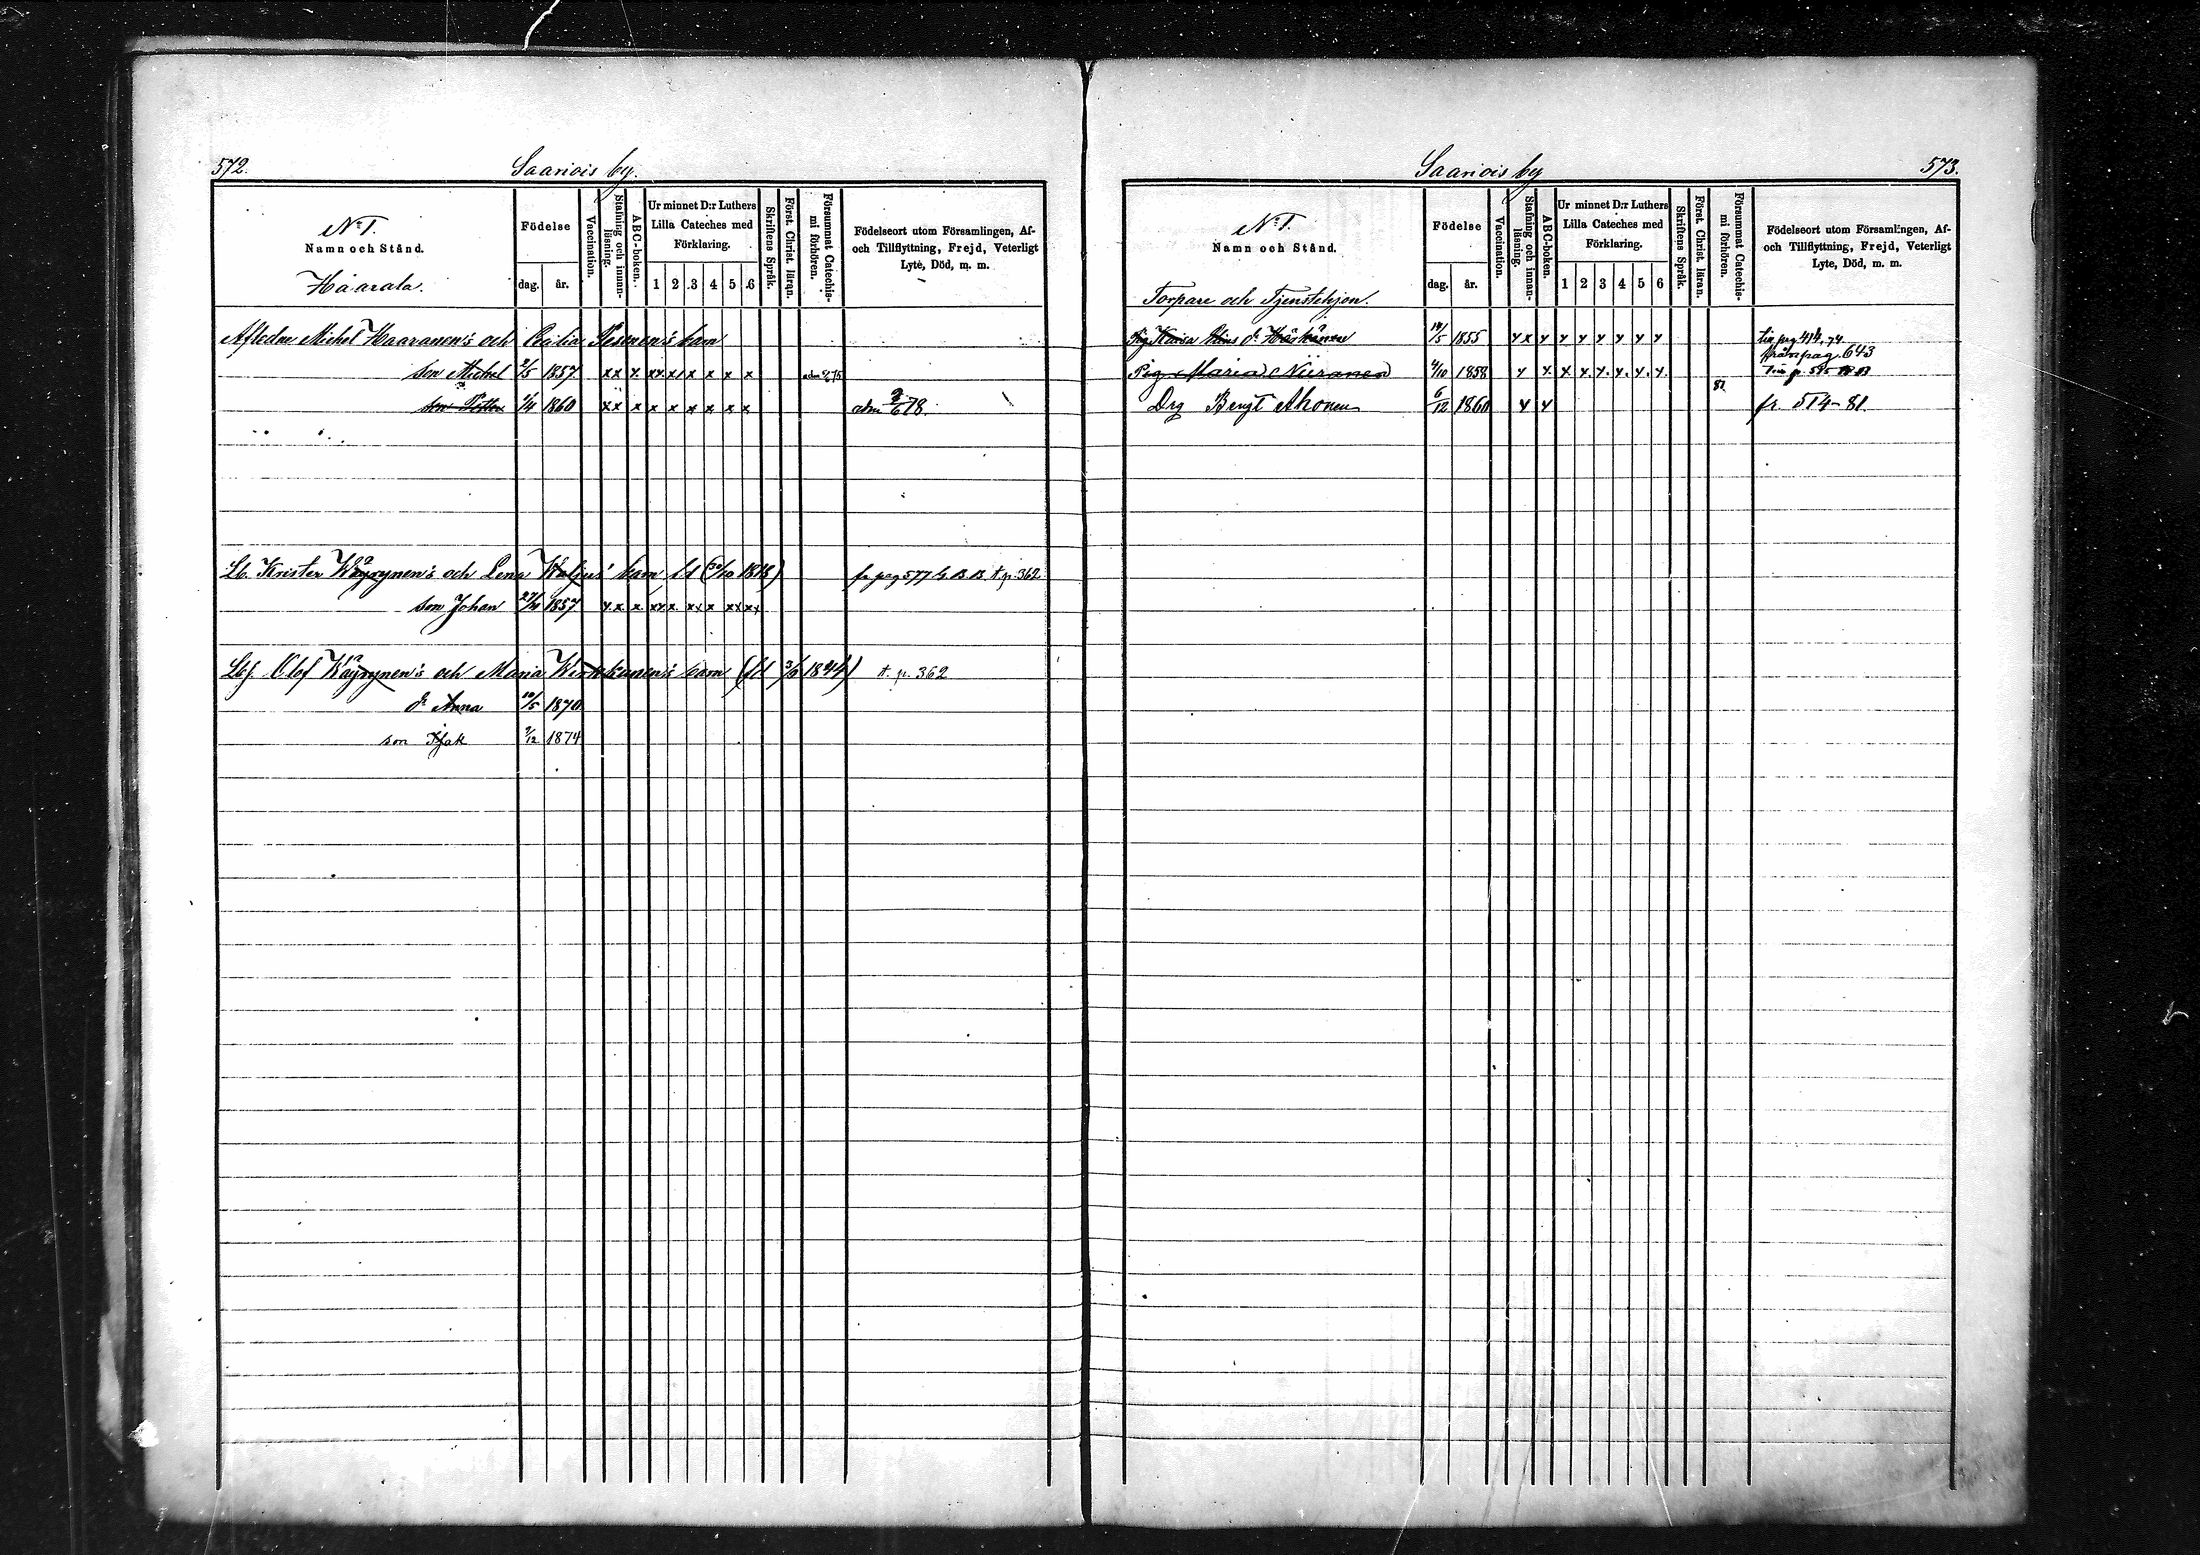 572.
Saariois by.
N:o 1.
Namn och Stånd.
Haarala.
Födelse
dag. år.
Vaccination.
Stafning och innanläsning.
ABC-boken.
Ur minnet D:r Luthers Lilla Cateches med Förklaring.
1 2 3 4 5 6
Skriftens Språk.
Först. Christ. läran.
Försummat Catechismi förhören.
Födelseort utom Församlingen, Af- och Tillflyttning, Frejd, Veterligt Lyte, Död, m. m.
Afledne Michel Haaranen's och Cecilia Pesonen's barn
son Michel 2/5 1857 x x x x x x x x x x
son Petter 1/4 1860 x x x x x x x x x adm 78.
Lb. Krister Wäyrynen's och Lena barn (30/10 1818) fr pag 577 t.p. 362
son Johan 27/11 1857 x x x x x x x x x x x x x
Lbf. Olof Wäyrynen's och Maria barn 1844) t. p. 362
dr Anna 10/5 1870
son Isak 2/12 1874
573.
Saariois by
N:o 1.
Namn och Stånd.
Torpare och Tjenstehjon.
Födelse
dag. år.
Vaccination.
Stafning och innanläsning.
ABC-boken.
Ur minnet D:r Luthers Lilla Cateches med Förklaring.
1 2 3 4 5 6
Skriftens Språk.
Först. Christ. läran.
Försummat Catechismi förhören.
Födelseort utom Församlingen, Af- och Tillflyttning, Frejd, Veterligt Lyte, Död, m. m.
Pig. Kaisa dr Härkönen 19/5 1855 x x x x x x x x x till pag 414, 74
från pag. 643
Pig Maria Niiranen 4/10 1858 x x x x x x x x
81
Drg Bengt Ahonen 6/12 1860 x x fr. 514-81.